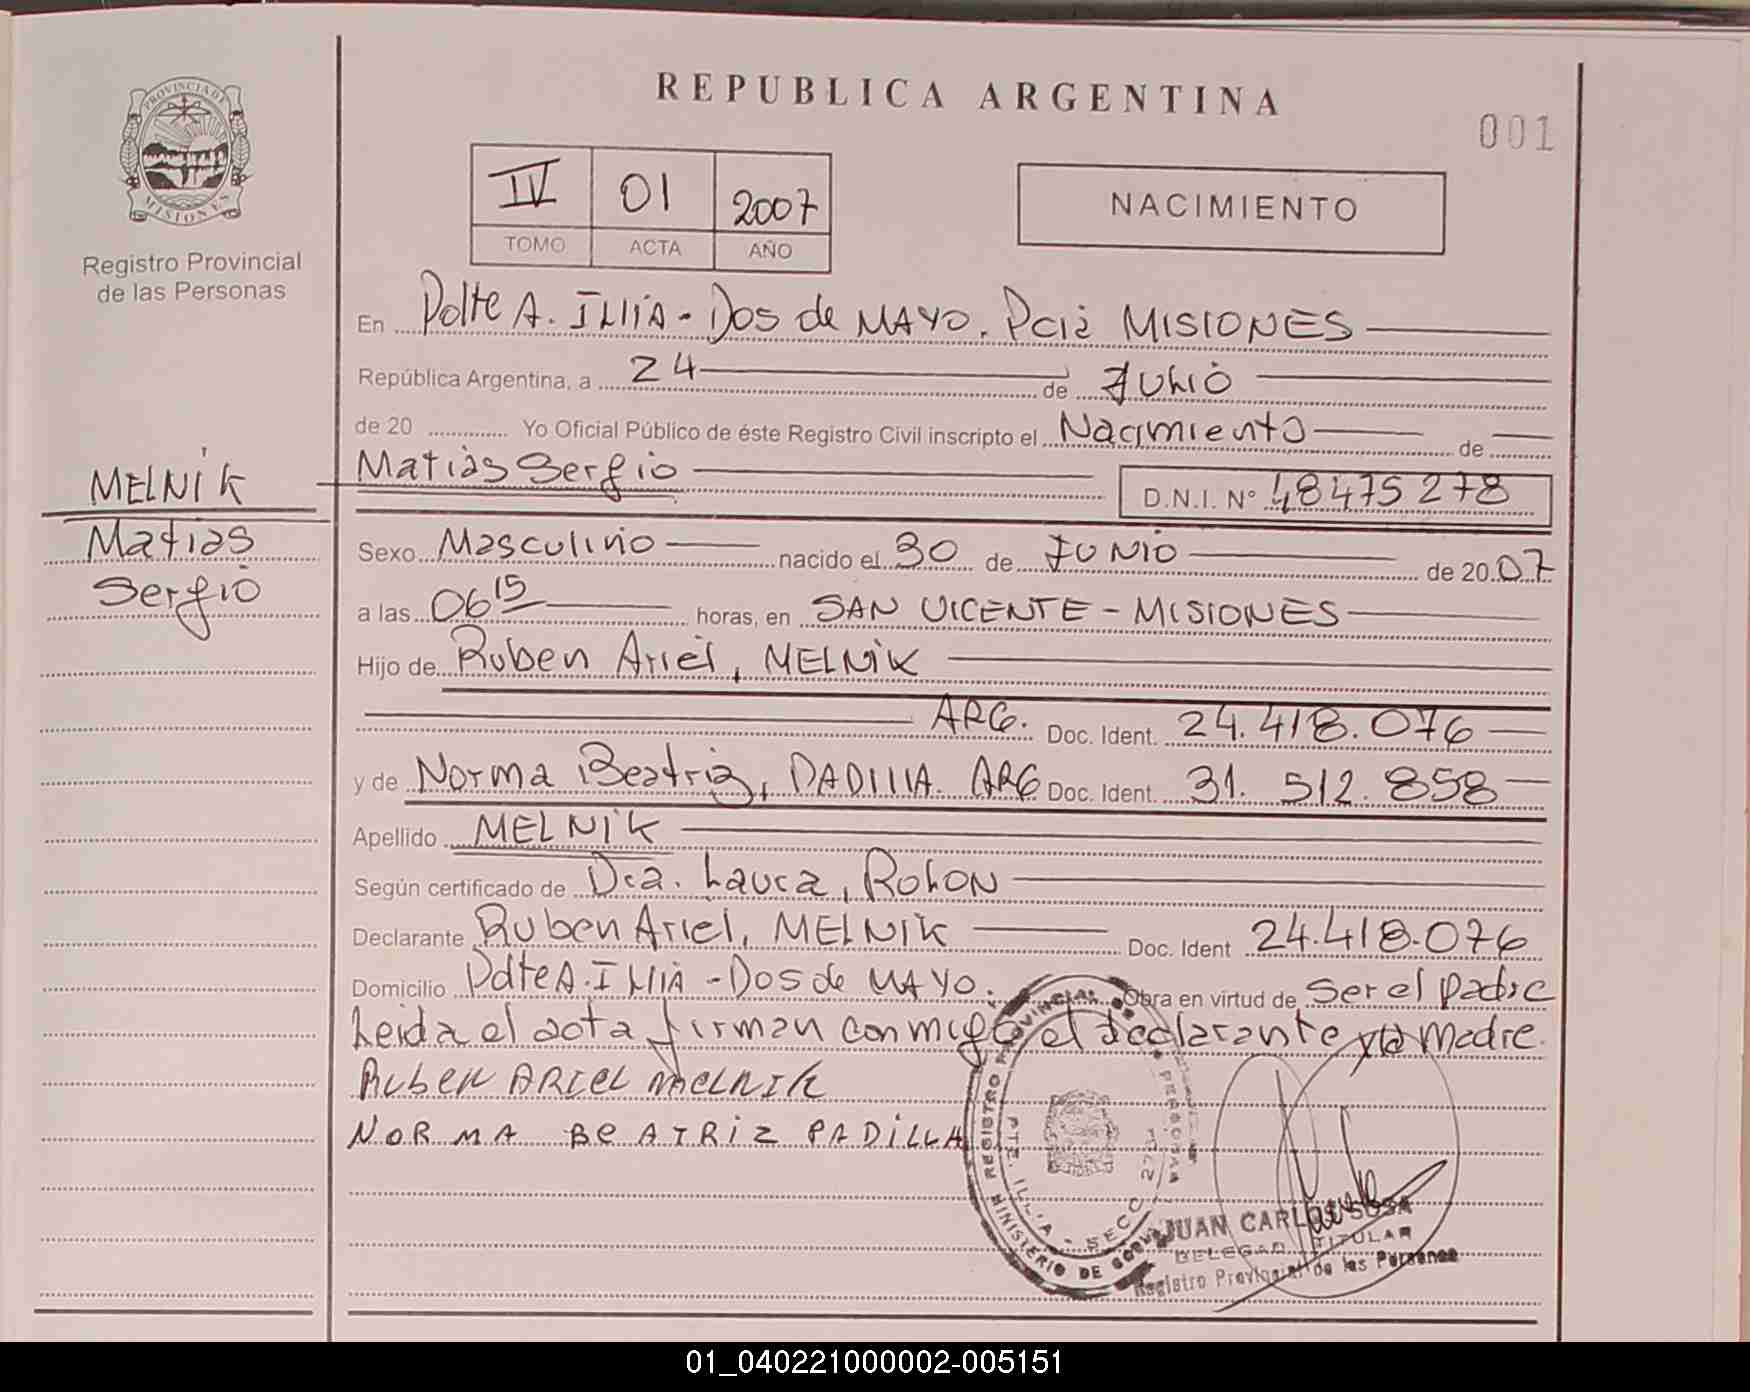 PROVINCIA DE
MISIONES
Registro Provincial
de las Personas
MELNIK
Matias
Sergio
REPUBLICA ARGENTINA
001
IV 01 2007
TOMO ACTA AÑO
NACIMIENTO
En Pdte A. Illia - Dos de MAYO. Pcia MISIONES
República Argentina, a 24 de Julio
de 20 Yo Oficial Público de éste Registro Civil inscripto el Nacimiento de
Matias Sergio D.N.I. N° 48475278
Sexo Masculino nacido el 30 de JUNIO de 20 07
a las 06 15 horas, en SAN VICENTE - MISIONES
Hijo de Ruben Ariel, MELNIK
ARG. Doc. Ident. 24.418.076
y de Norma Beatriz, PADILLA. ARG Doc. Ident. 31.512.858
Apellido MELNIK
Según certificado de Dra. Laura, ROLON
Declarante Ruben Ariel, MELNIK Doc. Ident 24.418.076
Domicilio Pdte A. Illia - Dos de MAYO. Obra en virtud de Ser el padre
Leida el acta firman conmigo el declarante y la Madre.
RUBEN ARIEL MELNIK
NORMA BEATRIZ PADILLA
REGISTRO PROVINCIAL PERSONAS
MINISTERIO DE GOBIE
PTE. ILLIA - SECC 227
JUAN CARLOS SOSA
DELEGADO TITULAR
Registro Provincial de las Personas
01_040221000002-005151